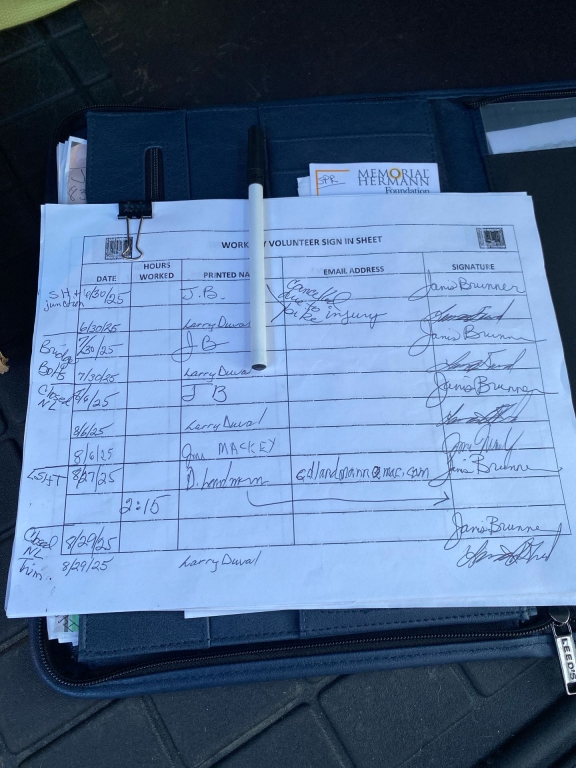 SPR
MEMORIAL
HERMANN
Foundation
WORK VOLUNTEER SIGN IN SHEET
DATE HOURS WORKED PRINTED NA EMAIL ADDRESS SIGNATURE
SHT junction 6/30/25 J.B. Canceled due to bike injury Janis Brunner
6/30/25 Larry Duval
Bridge 7/30/25 JB Janis Brunner
Bolts 7/30/25 Larry Duval
Closed NL 8/6/25 JB Janis Brunner
8/6/25 Larry Duval
8/6/25 MACKEY
LSHT 8/27/25 D. Landmann edlandmann@mac.com Janis Brunner
2:15
Closed NL 8/29/25 Janis Brunne
8/29/25 Larry Duval
LEED'S